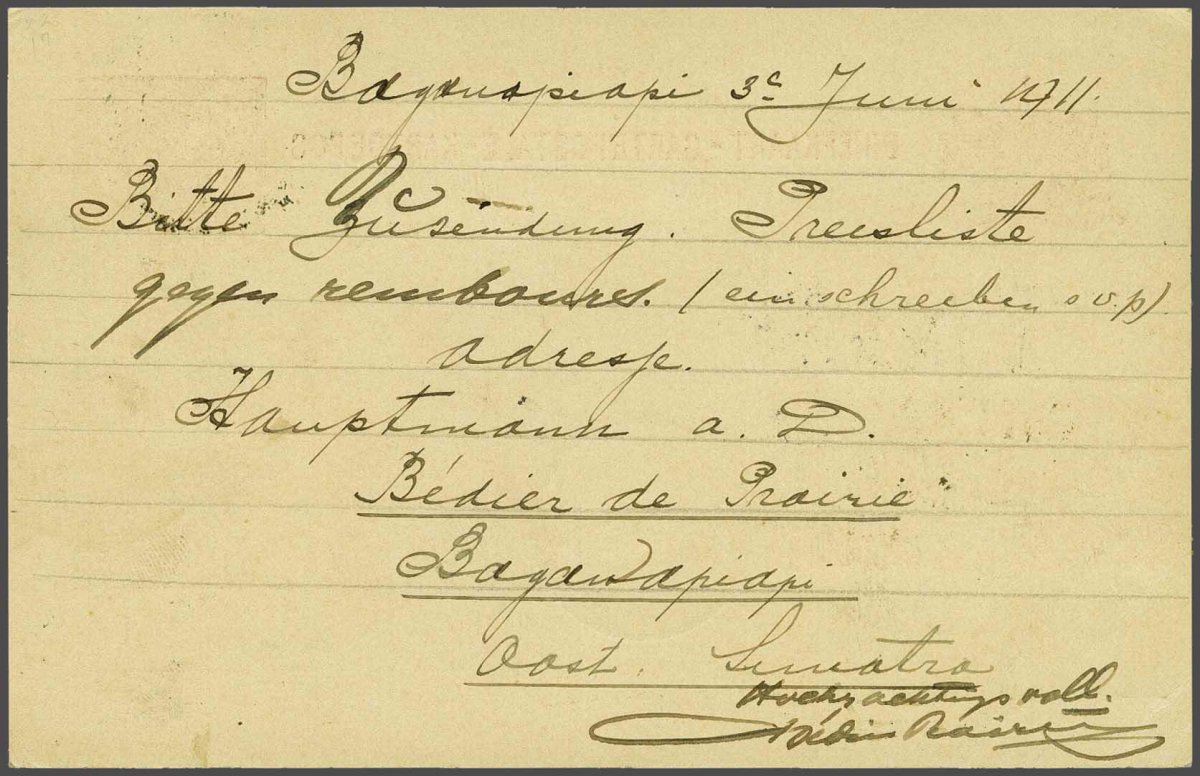 Baganapiapi 3e Juni 1911.
Bitte Zusendung. Preisliste
gegen rembours. (einschreiben s.v.p)
adresse.
Hauptmann a. D.
Bédier de Prairie
Baganapiapi
Oost. Sumatra
Hochachtungsvoll.
Bédier Prairie